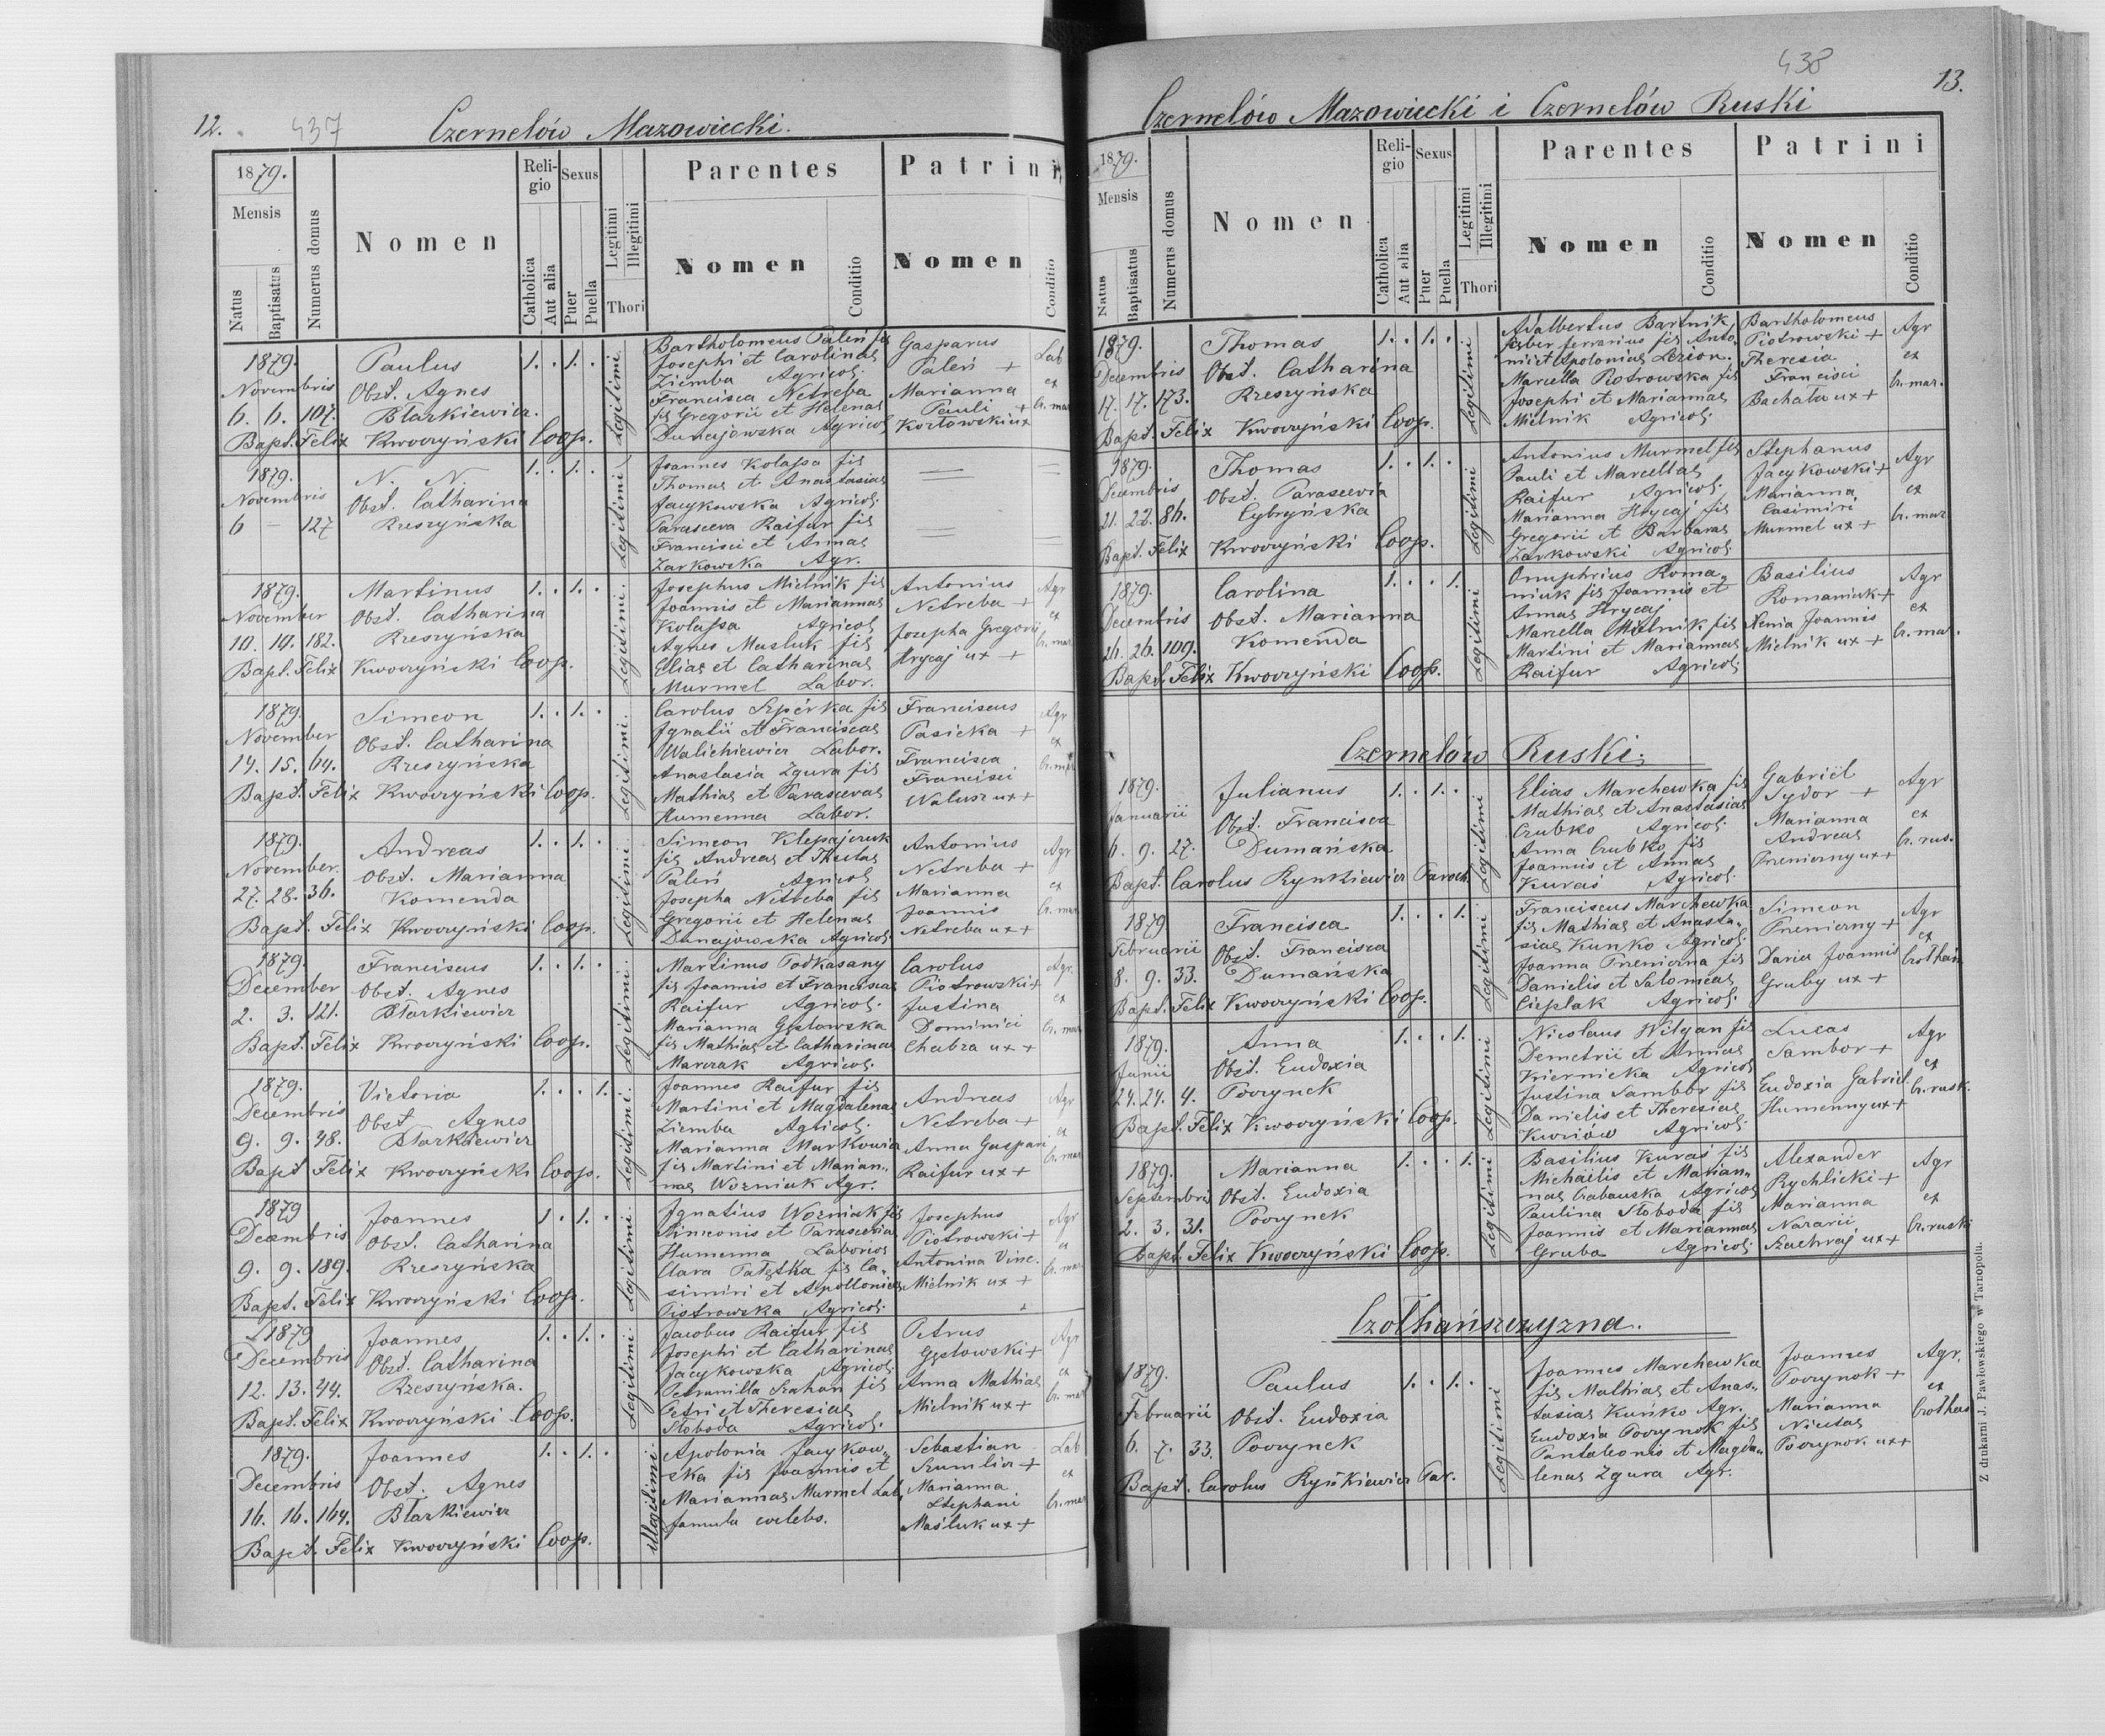 12.
437
Czernelów Mazowiecki.
1879.
Mensis
Natus
Baptisatus
Numerus domus
Nomen
Religio
Catholica
Aut alia
Sexus
Puer
Puella
Legitimi
Illegitimi
Thori
Parentes
Nomen
Conditio
Patrini
Nomen
Conditio
1879.
Novembris
6. 6. 107.
Paulus
Obst. Agnes
Błazkiewicz.
Bapt. Felix Kwoczyński Coop.
1. . 1. .
Legitimi
Bartholomeus Paleń fil
Josephi et Carolinae
Ziemba Agricol.
Francisca Netreba
fil Gregorii et Helenae
Dunajowska Agricol
Gasparus
Paleń +
Marianna
Pauli +
Kozłowski ux
Lab
et
Cz. maz
1879.
Novembris
6 — 127
N. N.
Obst. Catharina
Rzeszyńska
1. . 1. .
Legitimi
Joannes Kolassa fil
Thomae et Anastasiae
Jacykowska Agricol.
Parasceva Raifur fil
Francisci et Annae
Zarkowska Agr.
1879.
November
10. 10. 182.
Martinus
Obst. Catharina
Rzeszyńska
Bapt. Felix Kwoczyński Coop.
1. . 1. .
Legitimi.
Josephus Mielnik fil
Joannis et Mariannae
Kolassa Agricol
Agnes Musluk fil
Eliae et Catharinae
Murmel Labor.
Antonius
Netreba +
Josepha Gregorii
Hrycaj ux +
Agr
et
Cz. maz
1879.
November
14. 15. 64.
Simeon
Obst. Catharina
Rzeszyńska
Bapt. Felix Kwoczyński Coop.
1. . 1. .
Legitimi.
Carolus Szpérka fil
Ignatii et Franciscae
Walichiewicz Labor.
Anastasia Zgura fil
Mathiae et Parascevae
Humenna Labor.
Franciscus
Pasieka +
Francisca
Francisci
Walusz ux +
Agr
et
Cz. maz
1879.
November.
27. 28. 36.
Andreas
Obst. Marianna
Komenda
Bapt. Felix Kwoczyński Coop.
1. . 1. .
Legitimi.
Simeon Klepajczuk
fil Andreae et Theclae
Paleń Agricol
Josepha Netreba fil
Gregorii et Helenae
Dunajowska Agricol.
Antonius
Netreba +
Marianna
Joannis
Netreba ux +
Agr
et
Cz. maz
1879.
December
2. 3. 121.
Franciscus
Obst. Agnes
Błazkiewicz
Bapt. Felix Kwoczyński Coop.
1. . 1. .
Legitimi.
Martinus Podkasany
fil Joannis et Franciscae
Raifur Agricol.
Marianna Gęstowska
fil Mathiae et Catharinae
Marczak Agricol.
Carolus
Piotrowski +
Justina
Dominici
Chabza ux +
Agr.
et
Cz. maz
1879.
Decembris
9. 9. 48.
Victoria
Obst Agnes
Błazkiewicz
Bapt Felix Kwoczyński Coop.
1. . . 1.
Legitimi.
Joannes Raifur fil
Martini et Magdalenae
Ziemba Agricol.
Marianna Markowicz
fil Martini et Marian„
nae Wozniak Agr.
Andreas
Netreba +
Anna Gaspari
Raifur ux +
Agr
et
Cz. maz
1879
Decembris
9. 9. 189.
Joannes
Obst. Catharina
Rzeszyńska
Bapt. Felix Kwoczyński Coop.
1 . 1. .
Legitimi.
Ignatius Wozniak fil
Simeonis et Parasceviae
Humenna Laborios
Clara Pałętka fil Ca„
simiri et Apolloniae
Piotrowska Agricol.
Josephus
Piotrowski +
Antonina Vinc.
Mielnik ux +
Agr
et
Cz. maz
1879
Decembris
12. 13. 44.
Joannes
Obst. Catharina
Rzeszyńska.
Bapt. Felix Kwoczyński Coop.
1. . 1. .
Legitimi.
Jacobus Raifur fil
Josephi et Catharinae
Jacykowska Agricol.
Petronilla Szahan fil
Petri et Theresiae
Słoboda Agricol.
Petrus
Gęstowski +
Anna Mathiae
Mielnik ux +
Agr
et
Cz. maz
1879.
Decembris
16. 16. 164.
Joannes
Obst. Agnes
Błazkiewicz
Bapt. Felix Kwoczyński Coop.
1. . 1. .
Illegitimi.
Apolonia Jacykow„
ska fil Joannis et
Mariannae Murmel Lab,
famula coelebs.
Sebastian
Szumliz +
Marianna
Stephani
Maśluk ux +
Lab
et
Cz. maz
438
13.
Czernelów Mazowiecki i Czernelów Ruski
1879.
Mensis
Natus
Baptisatus
Numerus domus
Nomen
Religio
Catholica
Aut alia
Sexus
Puer
Puella
Legitimi
Illegitimi
Thori
Parentes
Nomen
Conditio
Patrini
Nomen
Conditio
1879.
Decembris
17. 17. 173.
Thomas
Obst. Catharina
Rzeszyńska
Bapt. Felix Kwoczyński Coop.
1. . 1. .
Legitimi
Adalbertus Bartnik
faber ferrarius fil Anto„
nii et Apoloniae Lezion.
Marcella Piotrowska fil
Josephi et Mariannae
Mielnik Agricol.
Bartholomeus
Piotrowski +
Theresia
Francisci
Bachata ux +
Agr
et
Cz. maz.
1879.
Decembris
21. 22. 86.
Thomas
Obst. Parascevia
Cybryńska
Bapt. Felix Kwoczyński Coop.
1. . 1. .
Legitimi
Antonius Murmel fil
Pauli et Marcellae
Raifur Agricol.
Marianna Hrycaj fil
Gregorii et Barbarae
Zarkowski Agricol.
Stephanus
Jacykowski +
Marianna
Casimiri
Murmel ux +
Agr
et
Cz. maz
1879.
Decembris
26. 26. 109.
Carolina
Obst. Marianna
Komenda
Bapt. Felix Kwoczyński Coop.
1. . . 1.
Legitimi
Onuphrius Roma„
niuk fil Joannis et
Annae Hrycaj
Marcella Mielnik fil
Martini et Mariannae
Raifur Agricol.
Basilius
Romaniuk +
Xenia Joannis
Mielnik ux +
Agr
et
Cz. maz.
Czernelów Ruski.
1879.
Januarii
6. 9. 27.
Julianus
Obst. Francisca
Dumańska
Bapt. Carolus Rynkiewicz Paroch.
1. . 1. .
Legitimi
Elias Marchewka fil
Mathiae et Anastasiae
Czubko Agricol.
Anna Czubko fil
Joannis et Annae
Kuraś Agricol.
Gabriël
Sydor +
Marianna
Andreae
Przenierny ux +
Agr
et
Cz. rus.
1879.
Februarii
8. 9. 33.
Francisca
Obst. Francisca
Dumańska
Bapt. Felix Kwoczyński Coop.
1. . . 1.
Legitimi
Franciscus Marchewka
fil Mathiae et Anasta„
siae Kunko Agricol.
Joanna Przenierna fil
Danielis et Salomeae
Cieplak Agricol.
Simeon
Przenierny +
Daria Joannis
Gruby ux +
Agr
et
Czołhań
1879.
Junii
24. 24. 4.
Anna
Obst. Eudoxia
Poczynek
Bapt. Felix Kwoczyński Coop.
1. . . 1.
Legitimi
Nicolaus Wilgan fil
Demetrii et Annae
Kiernicka Agricol
Justina Sambor fil
Danielis et Theresiae
Kwiów Agricol.
Lucas
Sambor +
Eudoxia Gabriel.
Humenny ux +
Agr
et
Cz. rusk.
1879.
Septembris
2. 3. 31.
Marianna
Obst. Eudoxia
Poczynek
Bapt. Felix Kwoczyński Coop.
1. . . 1.
Legitimi
Basilius Kuraś fil
Michäelis et Marian„
nae Czabanska Agricol
Paulina Słoboda fil
Joannis et Mariannae
Gruba Agricol.
Alexander
Rychlicki +
Marianna
Nazarii
Szachraj ux +
Agr
et
Cz. ruski
Czołhańszczyzna.
1879.
Februarii
6. 7. 33.
Paulus
Obst. Eudoxia
Poczynek
Bapt. Carolus Ryńkiewicz Par.
1. . 1. .
Legitimi
Joannes Marchewka
fil Mathiae et Anas„
tasiae Kuńko Agr.
Eudoxia Poczynok fil
Pantaleonis et Magda„
lenae Zgura Agr.
Joannes
Poczynok +
Marianna
Nicetae
Poczynok ux +
Agr.
et
Czołhań
Z drukarni J. Pawłowskiego w Tarnopolu.